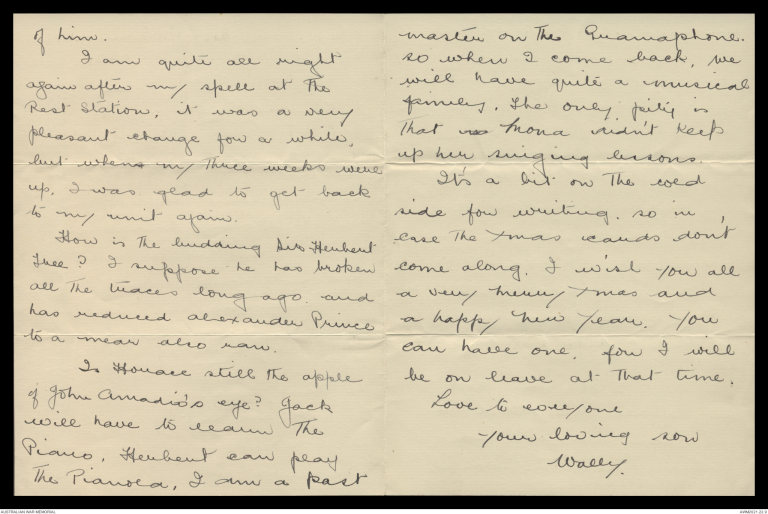 of him.
I am quite all right
again after my spell at the
Rest Station, it was a very
pleasant change for a while,
but when my three weeks were
up, I was glad to get back
to my unit again.
How is the budding Sir Herbert
Tree? I suppose he has broken
all the traces long ago, and
has reduced Alexander Prince
to a mear also ran.
Is Horace still the apple
of John Amadio's eye? Jack
will have to learn the
Piano, Herbert can play
the Pianola, I am a past
master on the Gramaphone.
so when I come back, we
will have quite a musical
family. The only pity is
that Mona didn't keep
up her singing lessons.
It's a bit on the cold
side for writing, so in
case the Xmas cards don't
come along, I wish you all
a very merry Xmas and
a happy New Year. You
can have one, for I will
be on leave at that time.
Love to everyone
your loving son
Wally.
AUSTRALIAN WAR MEMORIAL